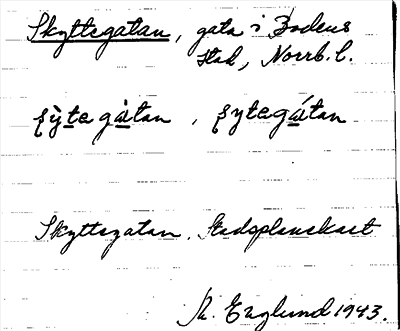 Skyttegatan, gata i Bodens
stad, Norrb. l.
ʂỳte gàtan, ʂytegátan
Skyttegatan. Stadsplanekart
R. Englund 1943.